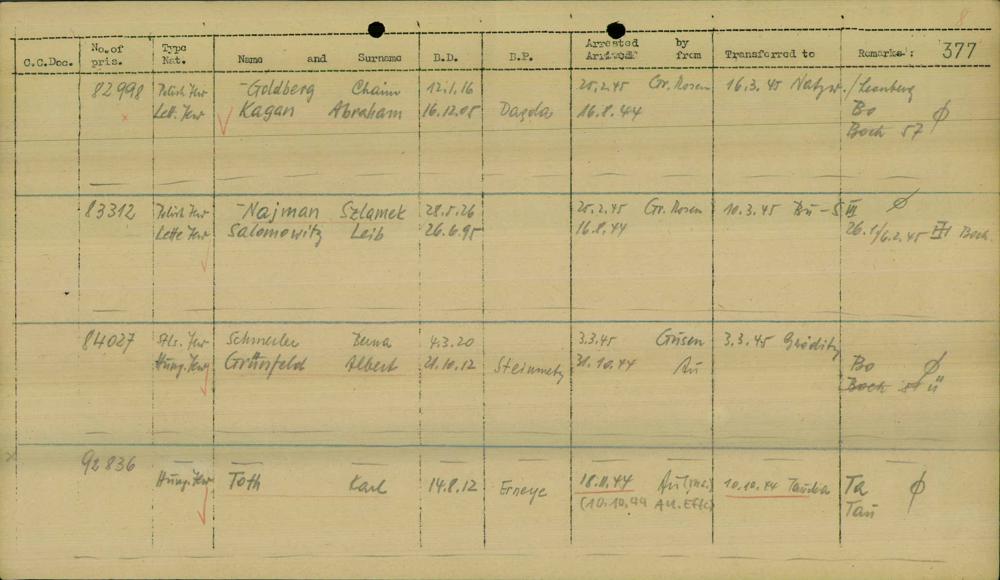 8
C.C.Doc. No. of pris. Type Nat. Name and Surname B.D. B.P. Arrested Arrived by from Transferred to Remarks: 377
82998 Polish Jew Goldberg Chaim 12.1.16 25.2.45 Gr. Rosen 16.3.45 Natzw./Leonberg
Lett. Jew Kagan Abraham 16.12.05 Dagda 16.8.44 Bo
Boch 57
83312 Polish Jew Najman Szlamek 28.5.26 25.2.45 Gr. Rosen 10.3.45 Bu - S III
Lette Jew Salomowitz Leib 26.6.95 16.8.44 26.1/6.2.45 Boch
84027 Jew Schmerler Berna 4.3.20 3.3.45 Gusen 3.3.45 Gröditz
Hung. Jew Grünfeld Albert 21.10.12 Steinmetz 31.10.44 Au Bo
Boch ü
92836
Hung. Jew Toth Karl 14.8.12 Erneye 18.11.44 Au 10.10.44 Taucha Ta
(10.10.44 Au. Eff.) Tau